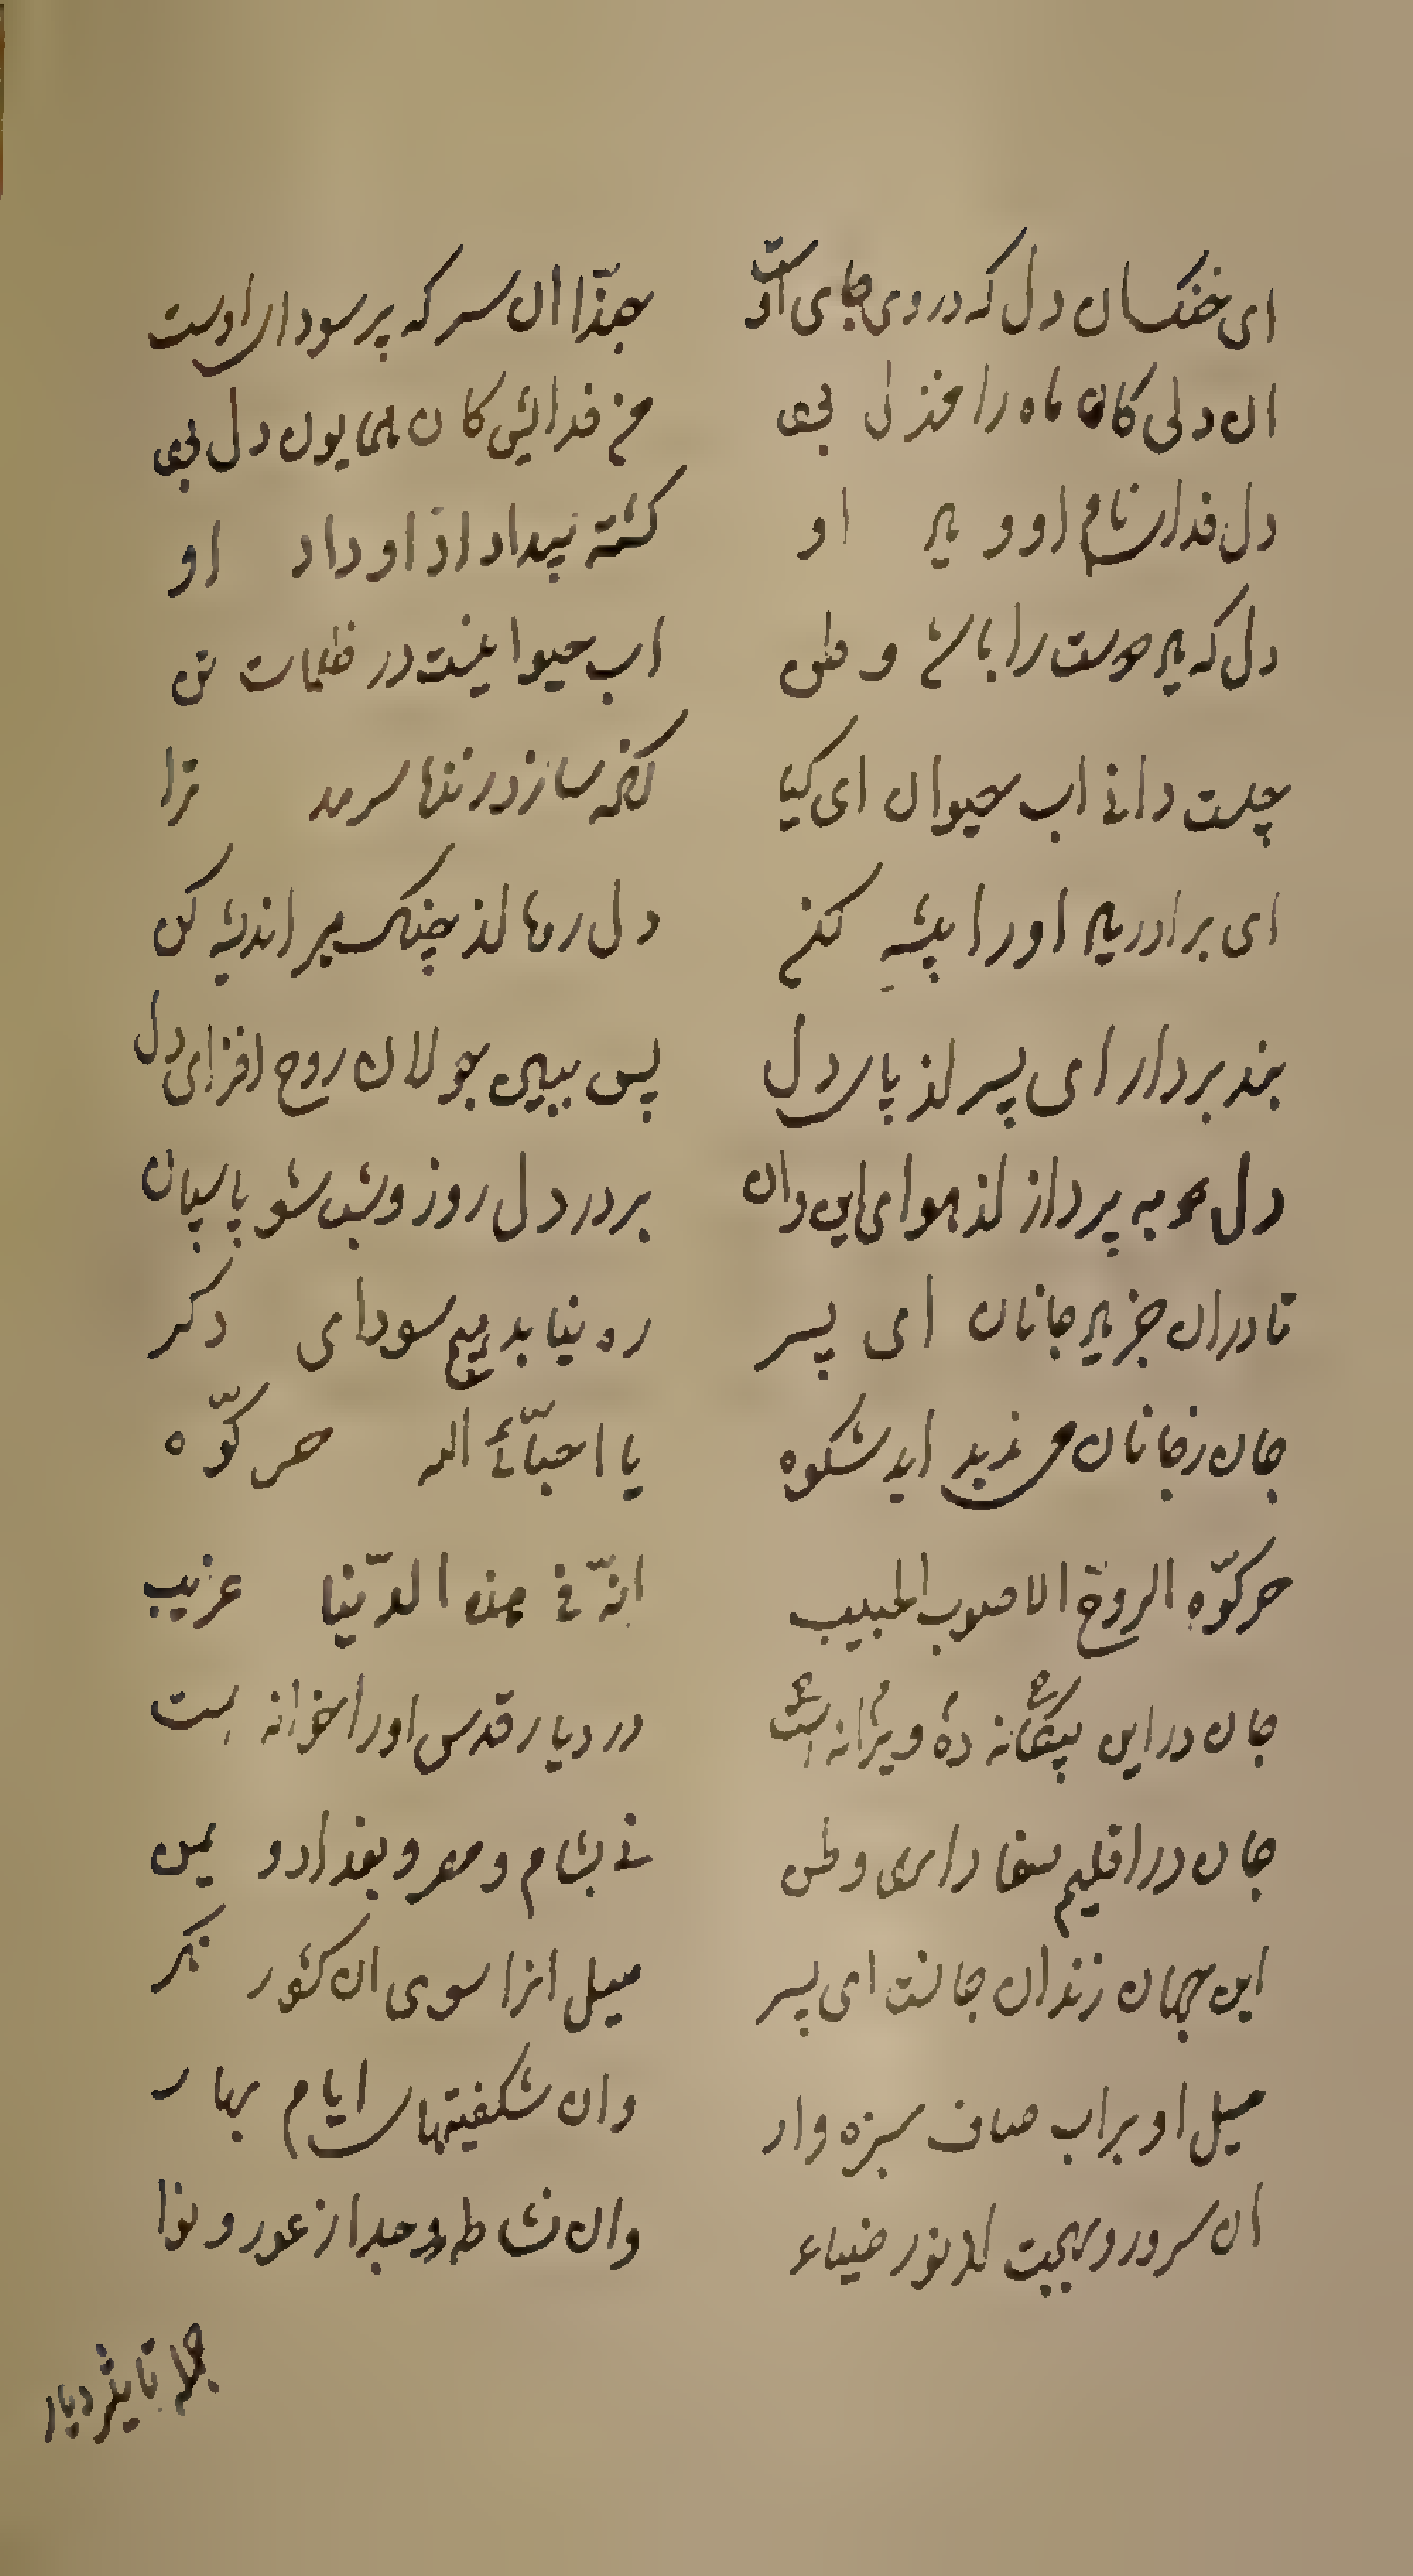 ای خنکسان دل که در وی جای اوست
حبّذا ان سر که پر سودای اوست
ان دلی کان ماه را منزل بی
من فدائی کان همایون دل بی
دل فدای نام او و یاد او
کشته بیداد از او داد او
دل که مهر دوست را باشد وطن
اب حیوانیست در ظلمات تن
چیست دانی اب حیوان ای کیا
زنده سازد در تنها سرمد ترا
ای برادر یاد او را پیشه کن
دل رها از چنک هر اندیشه کن
بند بردار ای پسر از پای دل
پس ببین جولان روح افزای دل
دل بپرداز از هوای این وان
بر در دل روز و شب شو پاسبان
تا دران جز یاد جانان ای پسر
ره نیابد هیچ سودای دکر
جان زجانان می اید شکوه
یا احبّائے الله حرکوّه
حرکوّه الروح الا صوب الحبیب
انّه فی هذه الدّنیا غریب
جان در این بیگانه ده ویرانه است
در دیار قدس او را خانه است
جان در اقلیم صفا دارد وطن
نے بشام و مصر و بغداد و یمن
این جهان زندان جانست ای پسر
میل انرا سوی ان کشور نکر
میل او بر اب صاف سبزه وار
وان شکفیتهای ایام بهار
ان سرور و بهجت از نور ضیاء
وان نشاط و وجد از عود و نوا
جمله تاثیر دیار